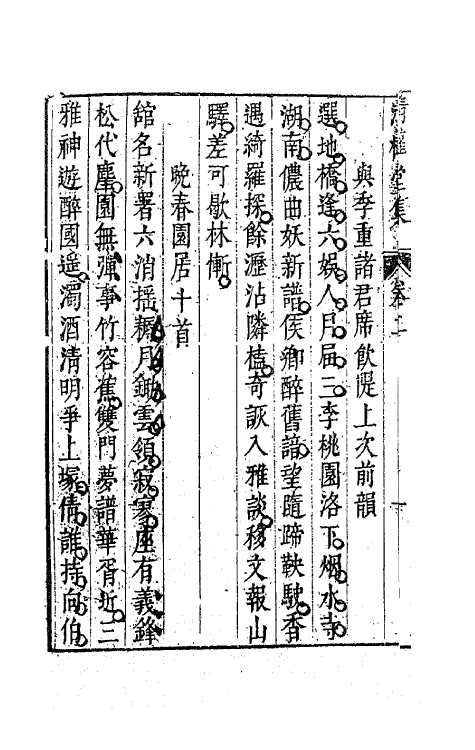 清權堂集 卷二
與季重諸君席飲隄上次前韻
選地橋逢六娛人月屆三李桃園洛下烟水寺
湖南儂曲妖新譜侯鄉醉舊諳望隨蹄軮駛香
遇綺羅探餘瀝沾隣榼奇詼入雅談移文報山
驛差可歇林慚
晚春園居十首
舘名新署六消搖耨月鋤雲領寂寥座有義鋒
松代麈園無彈事竹容蕉雙門夢譜華胥近三
雅神遊醉國遥濁酒清明爭上塚倩誰持向伯